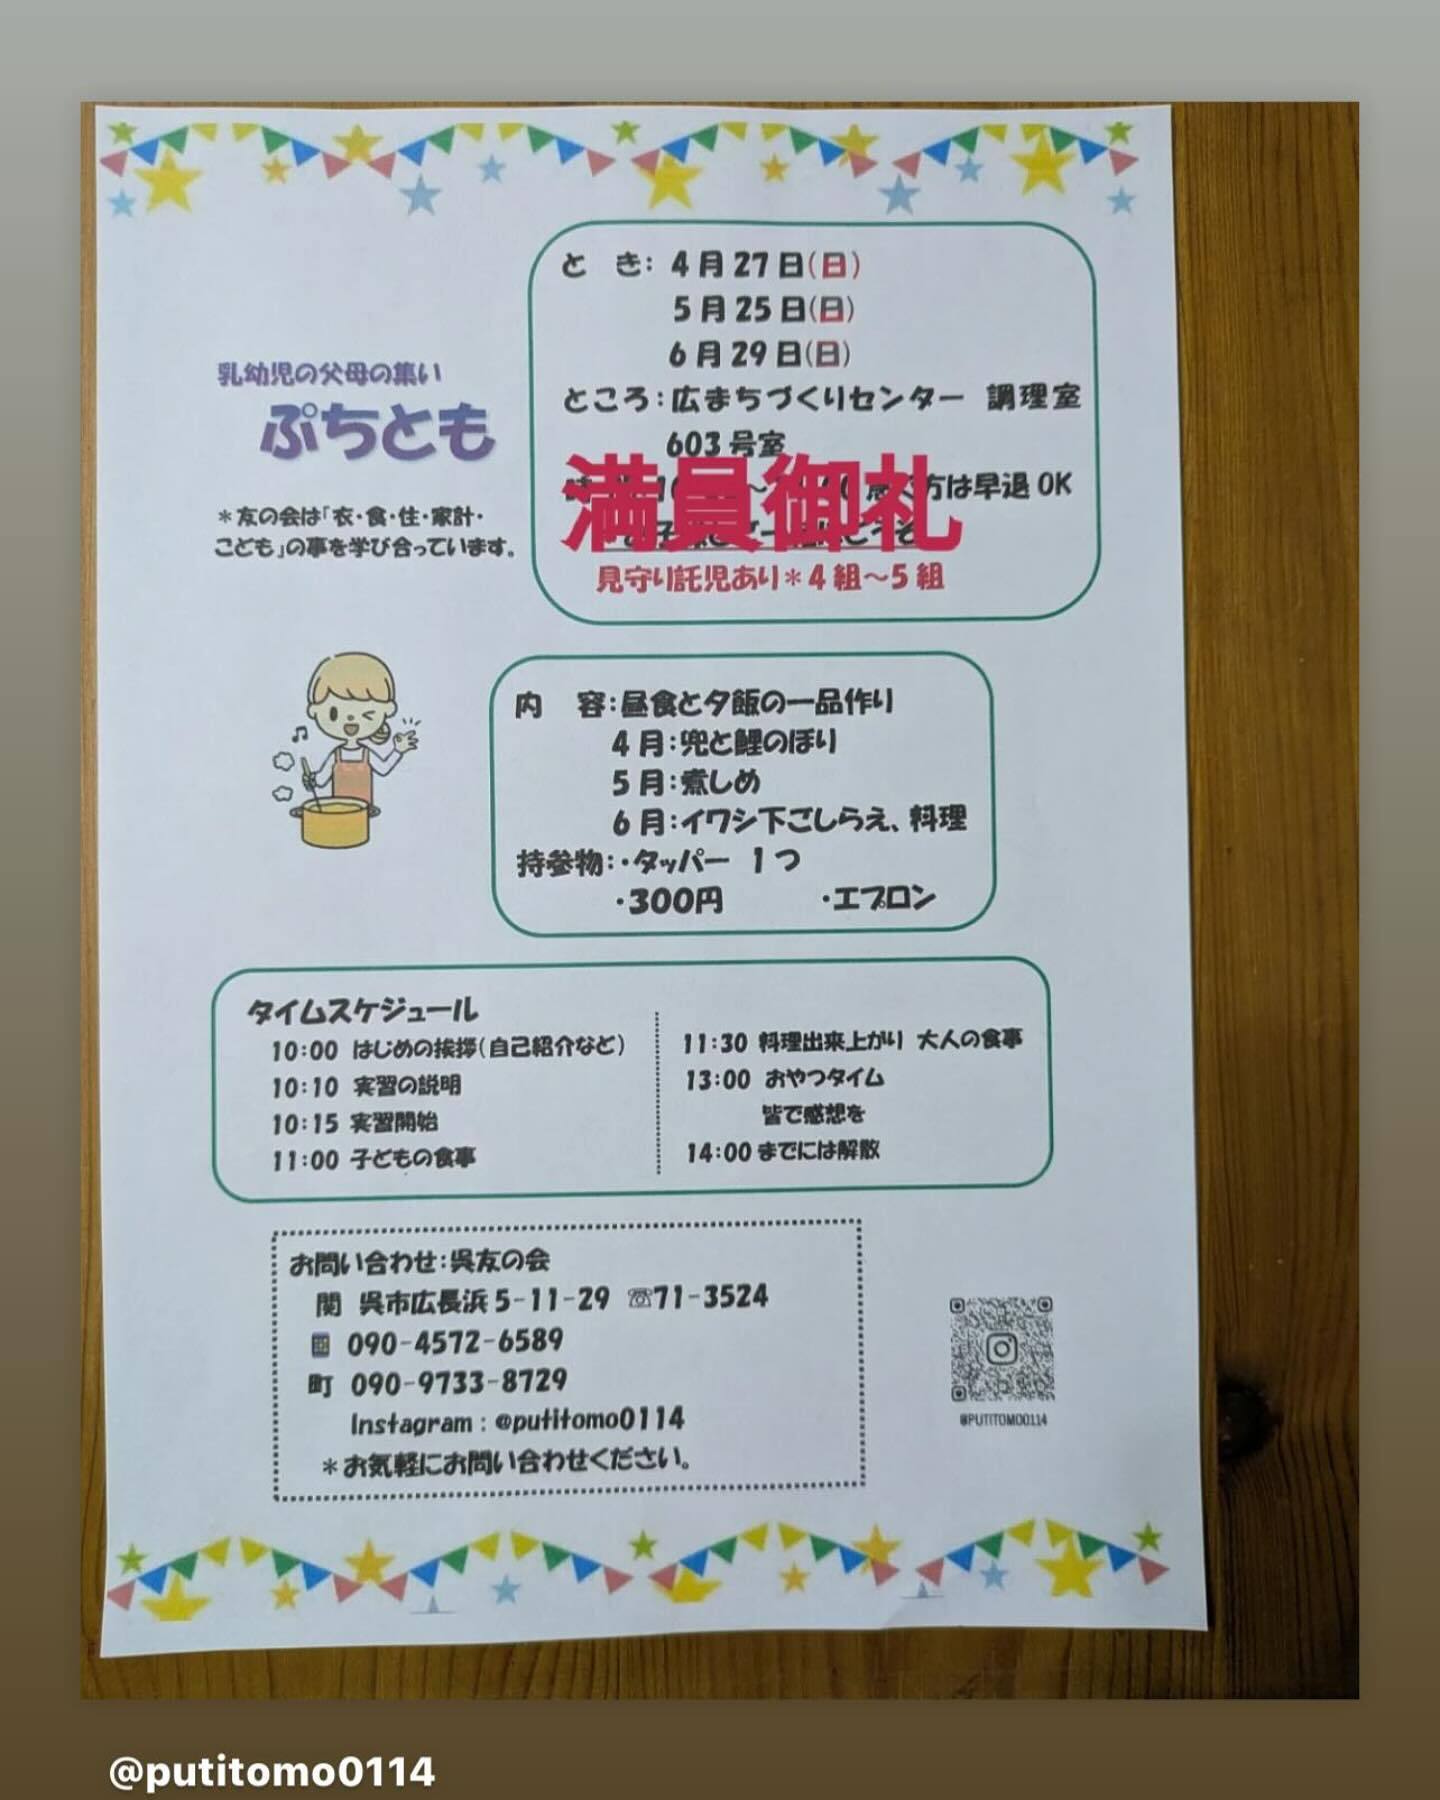 と き: 4月27日(日)
5月25日(日)
6月29日(日)
ところ:広まちづくりセンター 調理室
603号室
乳幼児の父母の集い
ぷちとも
*友の会は「衣・食・住・家計・
こども」の事を学び合っています。
満員御礼
方は早退OK
見守り託児あり*4組〜5組
内 容:昼食と夕飯の一品作り
4月:兜と鯉のぼり
5月:煮しめ
6月:イワシ下ごしらえ、料理
持参物:・タッパー 1つ
・300円 ・エプロン
タイムスケジュール
10:00 はじめの挨拶(自己紹介など)
10:10 実習の説明
10:15 実習開始
11:00 子どもの食事
11:30 料理出来上がり 大人の食事
13:00 おやつタイム
皆で感想を
14:00までには解散
お問い合わせ:呉友の会
関 呉市広長浜5-11-29 ☏71-3524
090-4572-6589
町 090-9733-8729
Instagram : @putitomo0114
*お気軽にお問い合わせください。
@PUTITOMO0114
@putitomo0114